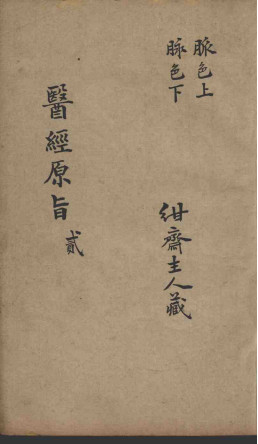 脈色上
脉色下
紺齋主人藏
醫經原旨
貳